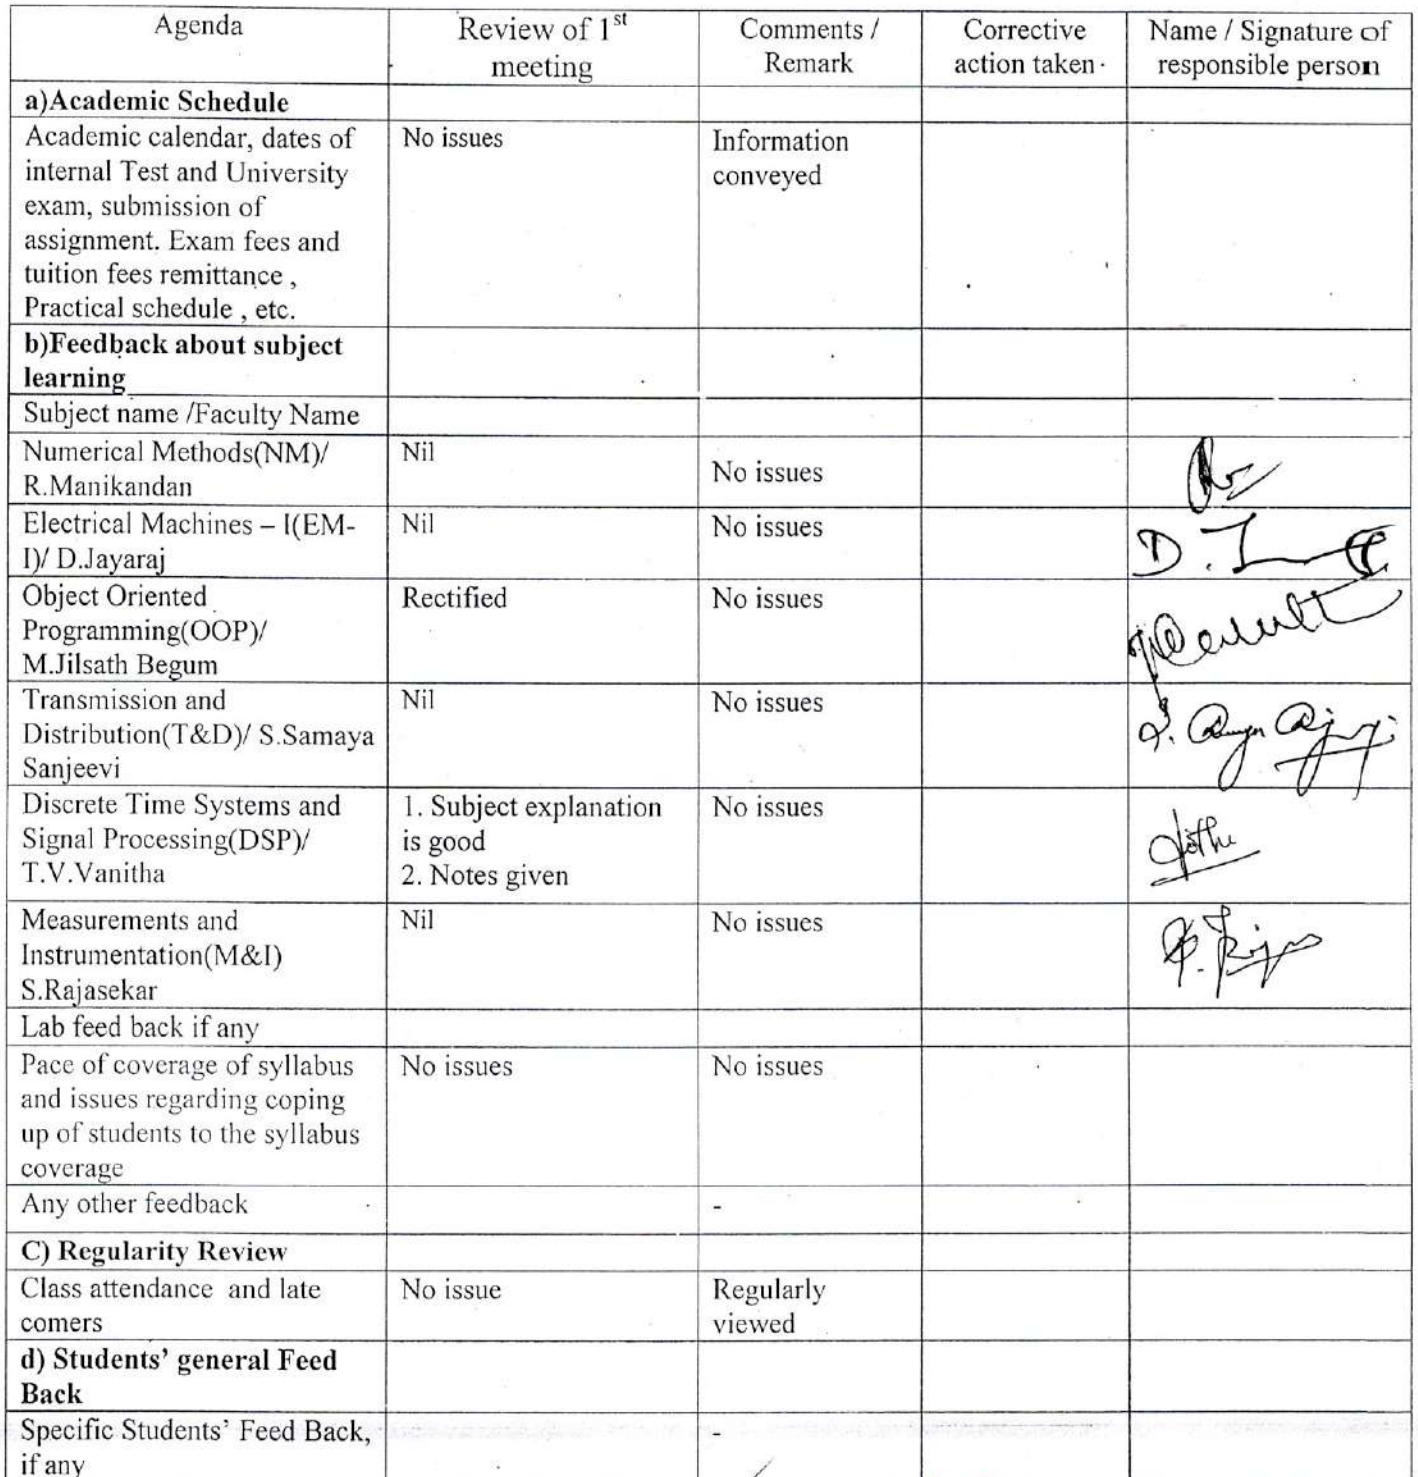 Agenda
Review of 1st
meeting
Comments /
Remark
Corrective
action taken
Name / Signature of
responsible person
a)Academic Schedule
Academic calendar, dates of
internal Test and University
exam, submission of
assignment. Exam fees and
tuition fees remittance ,
Practical schedule , etc.
No issues
Information
conveyed
b)Feedback about subject
learning
Subject name /Faculty Name
Numerical Methods(NM)/
R.Manikandan
Nil
No issues
Electrical Machines – I(EM-
I)/ D.Jayaraj
Nil
No issues
Object Oriented
Programming(OOP)/
M.Jilsath Begum
Rectified
No issues
Transmission and
Distribution(T&D)/ S.Samaya
Sanjeevi
Nil
No issues
Discrete Time Systems and
Signal Processing(DSP)/
T.V.Vanitha
1. Subject explanation
is good
2. Notes given
No issues
Measurements and
Instrumentation(M&I)
S.Rajasekar
Nil
No issues
Lab feed back if any
Pace of coverage of syllabus
and issues regarding coping
up of students to the syllabus
coverage
No issues
No issues
Any other feedback
-
C) Regularity Review
Class attendance and late
comers
No issue
Regularly
viewed
d) Students' general Feed
Back
Specific Students' Feed Back,
if any
-